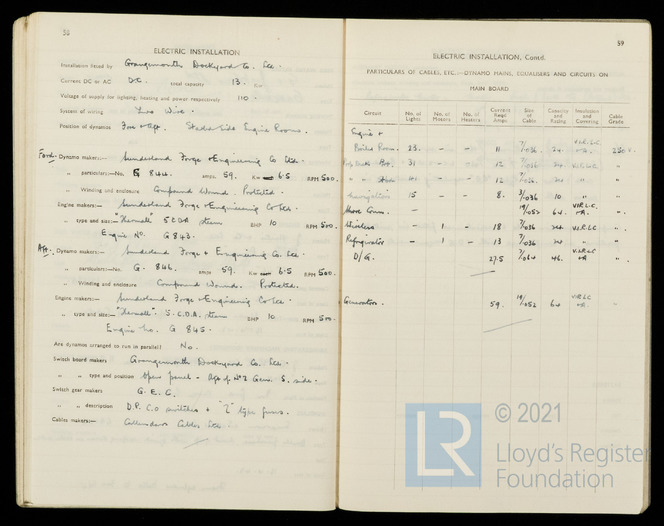 58
ELECTRIC INSTALLATION
Installation fitted by Grangemouth Dockyard Co. Ltd.
Current DC or AC D.C. total capacity 13. Kw.
Voltage of supply for lighting, heating and power respectively 110.
System of wiring Two Wire.
Position of dynamos For & Aft. Starboard Side Engine Room.
Ford. Dynamo makers:— Sunderland Forge & Engineering Co Ltd.
„ particulars:—No. G 844. amps. 59. KW 6.5 RPM 500.
„ Winding and enclosure Compound Wound. Protected.
Engine makers:— Sunderland Forge & Engineering Co Ltd.
„ type and size:— S.C.D.A. steam BHP 10 RPM 500.
Engine No. G 843.
Aft. Dynamo makers:— Sunderland Forge & Engineering Co. Ltd.
„ particulars:—No. G. 846. amps 59. KW 6.5 RPM 500.
„ Winding and enclosure Compound Wound. Protected.
Engine makers:— Sunderland Forge & Engineering Co Ltd.
„ type and size:— S.C.D.A. steam BHP 10 RPM 500.
Engine No. G 845.
Are dynamos arranged to run in parallel? No.
Switch board makers Grangemouth Dockyard Co. Ltd.
„ „ type and position Open panel - Aft of No 2 Gen. S. side.
Switch gear makers G.E.C.
„ „ description D.P. C.O switches & "Z" type fuses.
Cables makers:— Callenders Cables Ltd.
59
ELECTRIC INSTALLATION, Contd.
PARTICULARS OF CABLES, ETC.—DYNAMO MAINS, EQUALISERS AND CIRCUITS ON
MAIN BOARD
Circuit No. of Lights No. of Motors No. of Heaters Current Reqd. Amps Size of Cable Capacity and Rating Insulation and Covering Cable Grade
Engine &
Boiler Room 23. - - 11 7/.036 24. V.I.R.L.C. &A. 250 V.
31 - - 12 7/.036 24 V.I.R.L.C. „
41 - - 12 7/.036 24 „ „
Navigation 15 - - 8. 3/.036 10 „ „
Shore Conn. - 19/.052 64. V.I.R.L.C. &A. „
Wireless - 1 - 18 7/.036 24 V.I.R.L.C „
Refrigerator - 1 - 13 7/.036 24 „ „
D/G. 27.5 7/.064 46. V.I.R.L.C &A „
Generators. 59. 19/.052 64 V.I.R.L.C. &A. „
LR
© 2021
Lloyd's Register
Foundation